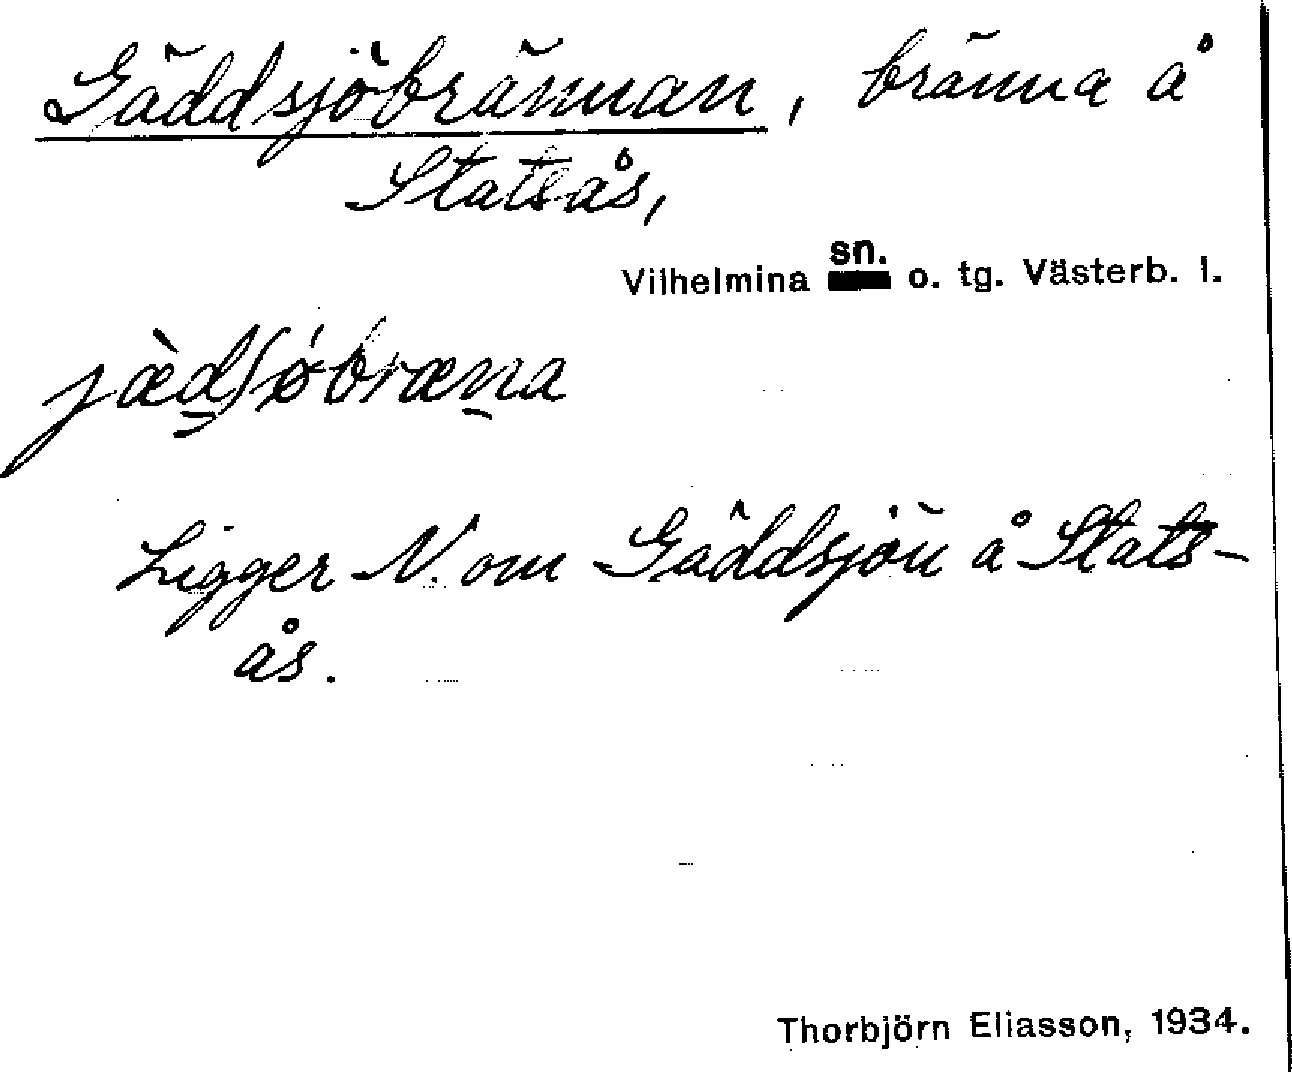 Gäddsjöbrännan, bränna å
Statsås,
Vilhelmina sn. o. tg. Västerb. l.
jæ̀dʃǿbræna
Ligger N. om Gäddsjön å Stats-
ås.
Thorbjörn Eliasson, 1934.